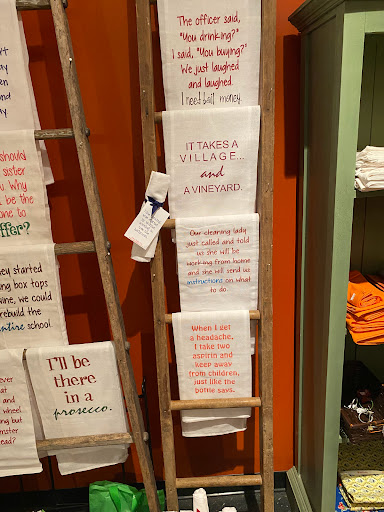 The officer said,
"You drinking?"
I said, "You buying?"
We just laughed
and laughed.
I need bail money.
IT TAKES A
VILLAGE...
and
A VINEYARD.
Our cleaning lady
just called and told
us she will be
working from home
and she will send us
instructions on what
to do.
When I get
a headache,
I take two
aspirin and
keep away
from children,
just like the
bottle says.
should
sister
Why
be the
one to
offer?
they started
box tops
wine, we could
rebuild the
entire school.
I'll be
there
in a
prosecco.
and
wheel
but